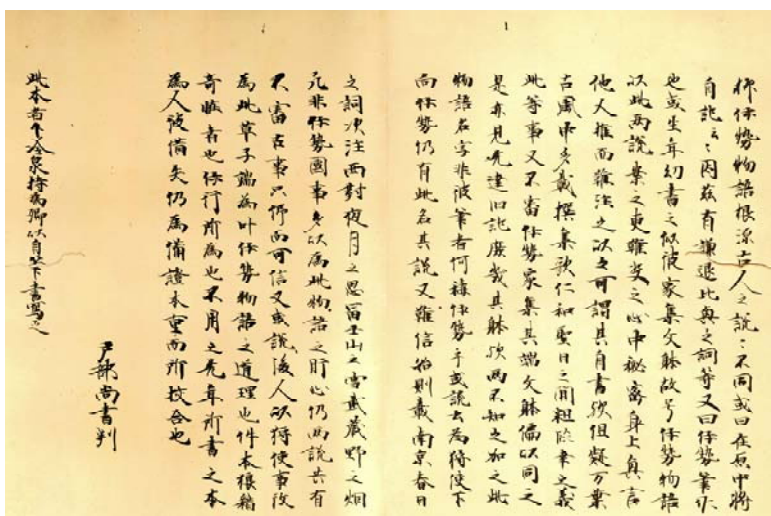 抑伊勢物語根源古人之説々不同或曰在原中将
自記之云々因茲有謙退比興之詞等又曰伊勢筆作
也或生年幼書之似彼家集文躰故号伊勢物語
以此両説案之更難決之心中秘密身上真言
他人推而難注之以之可謂其自書歟但疑万葉
古風中多載撰集歌仁和聖日之間粗臨幸之義
此等事又不審伊勢家集其端文躰偏以同之
是亦見先達旧記廃哉其躰歟両不知之加之此
物語名字非彼筆者何称伊勢乎或説云為狩使下
向伊勢仍有此名其説又難信始則載南京春日
之詞次注西対夜月之思富士山之雪武蔵野之烟
凡非伊勢国事多以為此物語之肝心仍両説共有
不審古事只仰而可信又或説後人以狩使事改
為此草子端為叶伊勢物語之道理也件本狼藉
奇恠者也伊行所為也不用之先年所書之本
為人被借失仍為備證本重而所校合也
戸部尚書判
此本者下冷泉持為卿以自筆下書写之